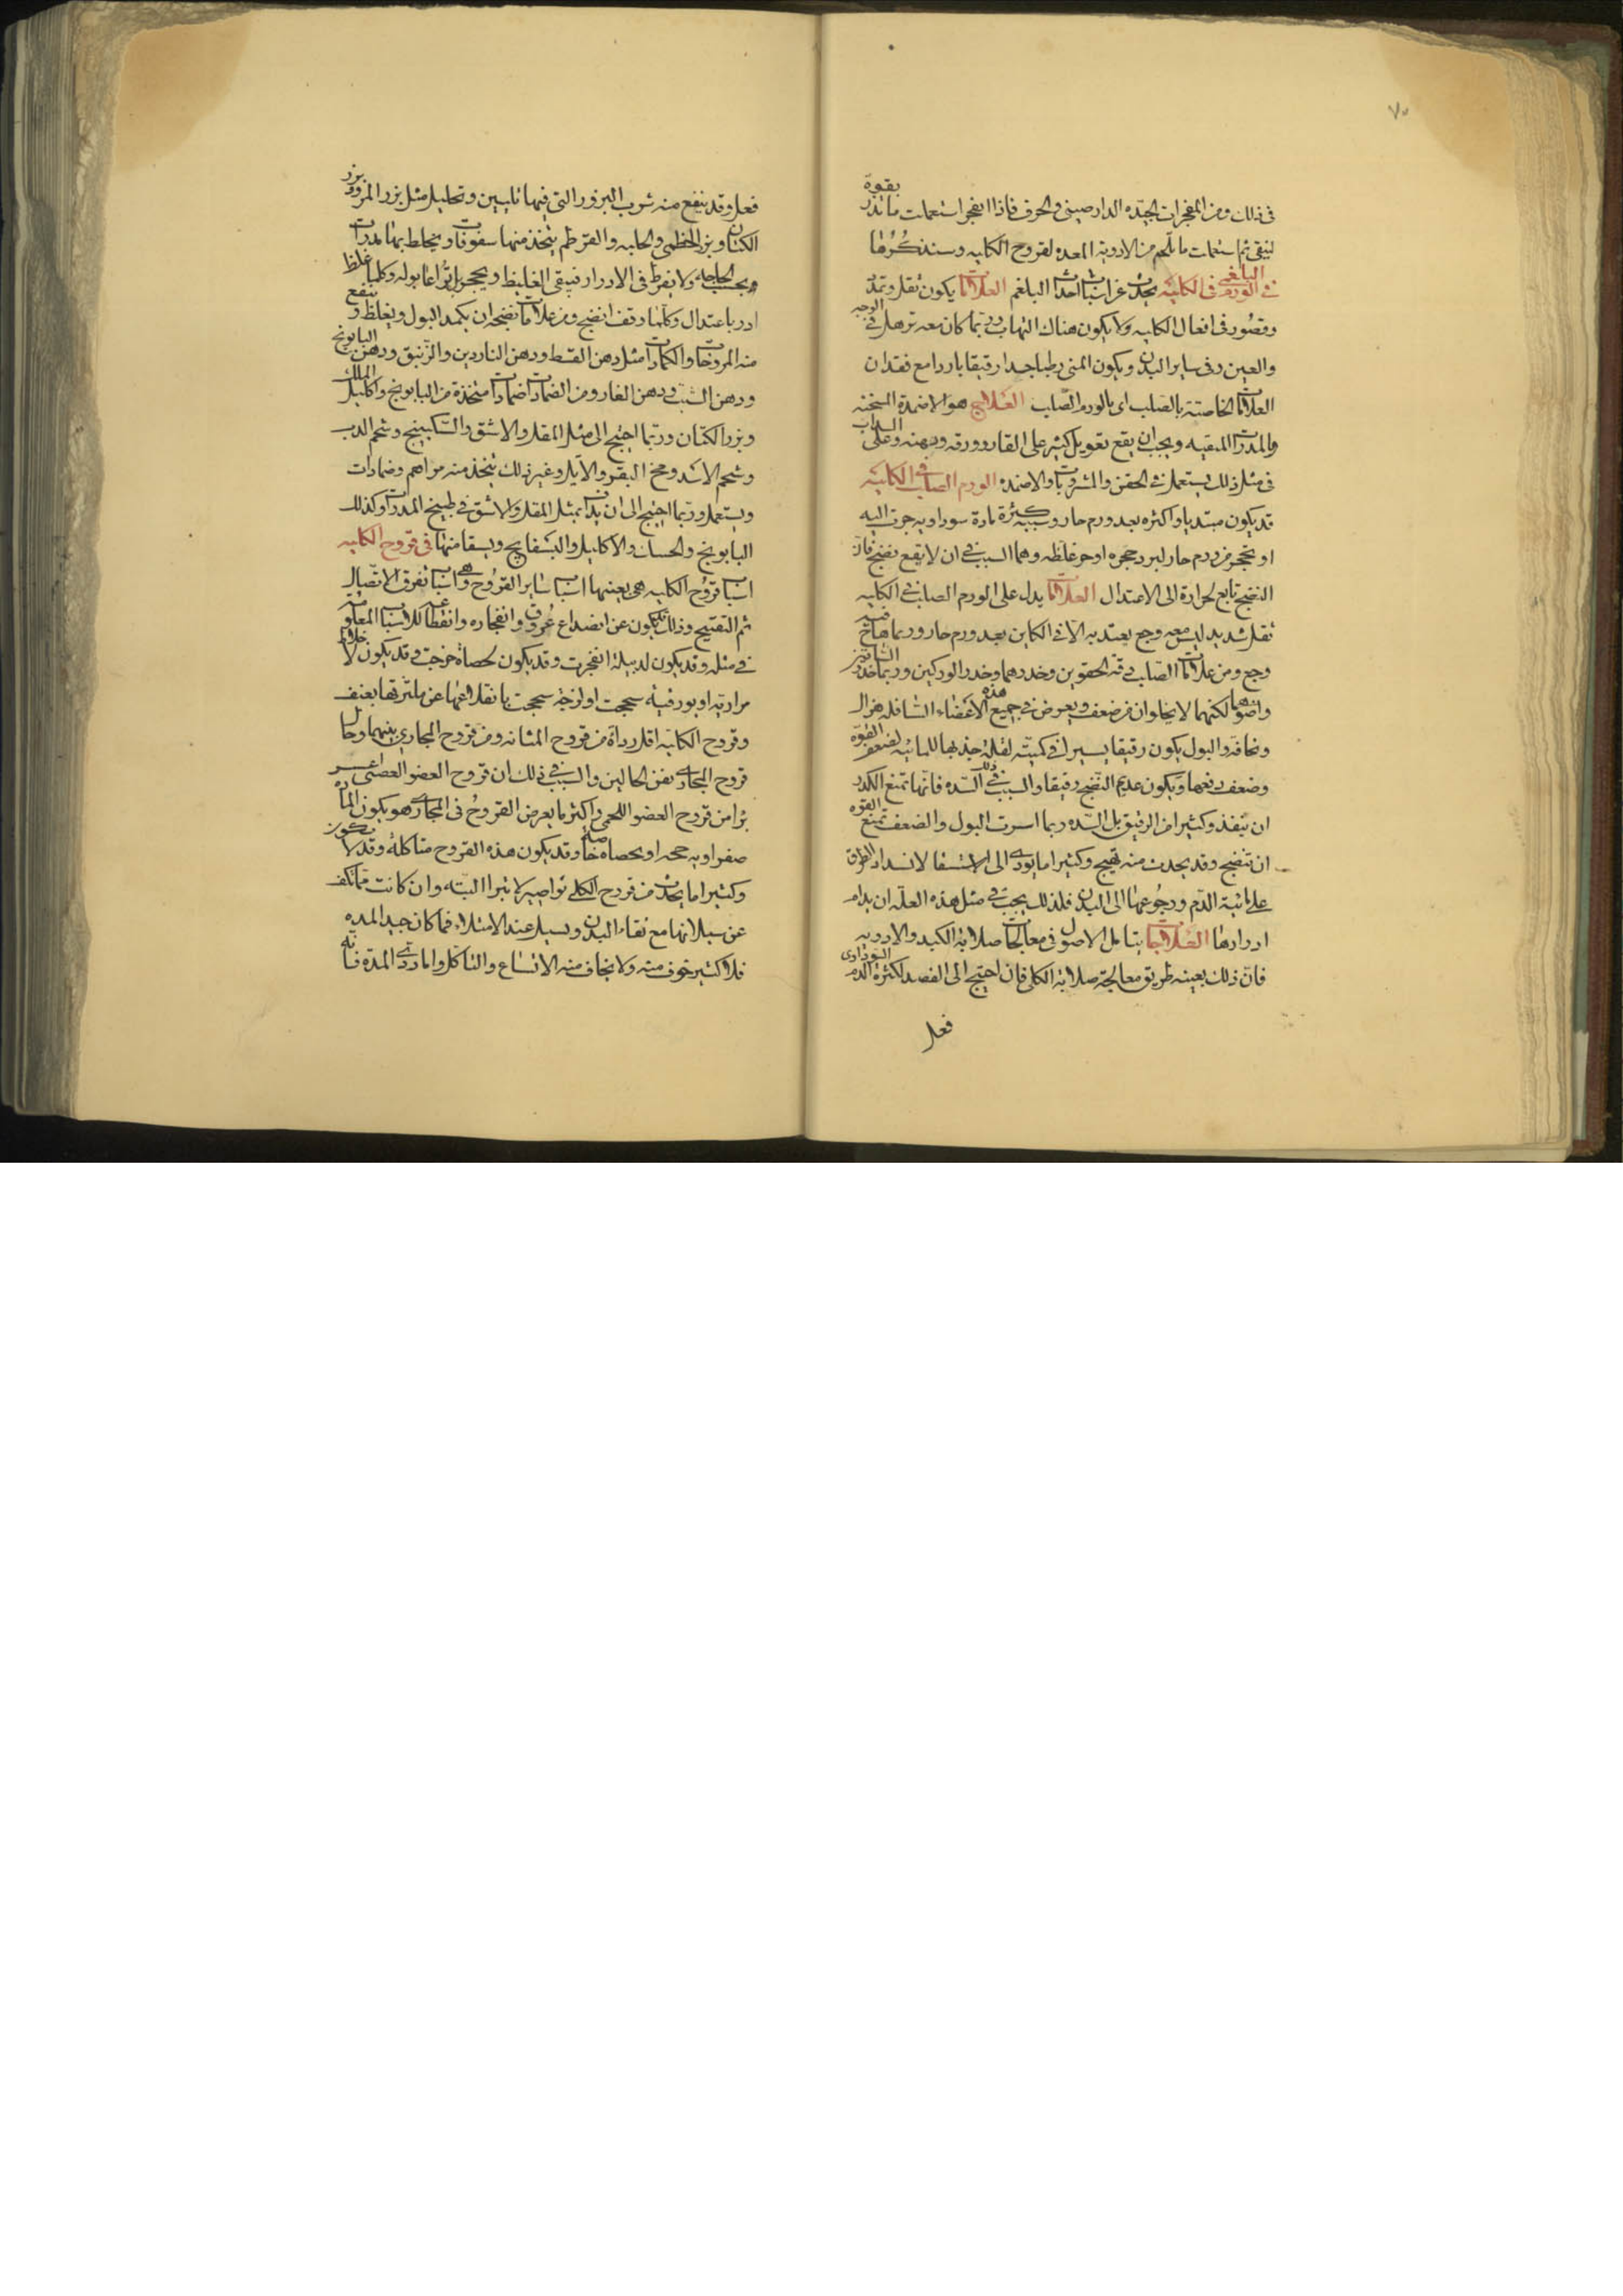 ٧٥
فى ذلك ومن المفجرات الجيّده الدارصينى والحرف فاذا انفجر استعملت ما يدر بقوة
لينقى ثم استعملت ما يلحم من الادوية المعده لقروح الكليه وسنذكرها
فى الورم البلغمى فى الكليه يحدث عن اسباب احداث البلغم العلامات يكون ثقل وتمدد
وقصور فى افعال الكليه ولا يكون هناك التهاب وربّما كان معه ترهل فى الوجه
والعين وفى ساير البدن ويكون المنى رطبا جدا رقيقا باردا مع فقدان
العلامات الخاصة بالصلب اى بالورم الصلب العلاج هو الاضمدة المسخنه
والمدرات المنقيه ويجب ان يقع تعويل كثير على الغار وورقه ودهنه وعلى السداب
فى مثل ذلك يستعمل فى الحقن والمشروبات والاضمده الورم الصلب فى الكليه
قد يكون مبتديا واكثره بعد ورم حار وسببه كثرة مادة سوداويه جرت اليه
او تحجر من ورم حار لبرد حجره او حر غلظه وهما السبب فى ان لا يقع نضج فان
النضج تابع لحرارة الى الاعتدال العلامات يدل على الورم الصلب فى الكليه
ثقل شديد ليس معه وجع يعتد به الا فى الكاين بعد ورم حار وربما هاج فيه
وجع ومن علامات الصلب دقة الحقوين وخدرهما وخدر الوركين وربما خدر الساقين
لكنهما لا يخلوان من ضعف ويعرض فى جميع هذه الاعضاء السافله هزال
ونحافة والبول يكون رقيقا يسيرا فى كميته لقلة جذبها للمائيه لضعف القوة
وضعف دفعها ويكون عديم النضج رقيقا والسبب فى ذلك السده فانّها تمنع الكدر
ان ينفذ وكثيرا من الرقيق بل السده ربما اسرت البول والضعف يمنع القوه
ان تنضج وقد يحدث منه تهيج وكثيرا ما يودى الى الاستسقا لانسداد الطرق
على مائية الدّم ورجوعها الى البدن فلذلك يجب فى مثل هذه العلّه ان يدام
ادرارها العلاجات يتامل الاصول فى معالجات صلابة الكبد والادويه
فان ذلك بعينه طريق معالجة صلابة الكلى فان احتيج الى الفصد لكثرة الدم السوداوى
فعل
فعل وقد ينفع منه شرب البزور التى فيها تليين وتحليل مثل بزر المرو وبزر
الكتان وبزر الخطمى والحلبه والقرطم يتخذ منها سفوفات ويخلط بها مدرات
بحسب الحاجه ولا يفرط فى الادرار فيبقى الغليظ ويحجر بل يراعا بوله وكلما غلظ
ادر باعتدال وكلما رقف انضج ومن علامات نضجه ان يكمد البول ويغلظ وينفع
منه المروخات والكمادات مثل دهن القسط ودهن الناردين والزنبق ودهن البابونج
ودهن الشبث ودهن الغار ومن الضمادات ضمادات متخذة من البابونج واكليل الملك
وبزر الكتان وربما احتيج الى مثل المقل والاشق والسكبينج وشحم الدب
وشحم الاسد ومخ البقر والايل وغير ذلك يتخذ منه مراهم وضمادات
ويستعمل وربما احتيج الى ان يداف بمثل المقل والاشق فى طبيخ المدرات وكذلك
البابونج والحسك والاكليل والبسفايج ويسقا منها فى قروح الكليه
اسباب قروح الكليه هى بعينها اسباب ساير القروح وهى اسباب تفرق الاتصال
ثم التقيح وذلك يكون عن انصداع عروق وانفجاره وانقطاعه للاسباب المعلومة
فى مثله وقد يكون لدبيلة انفجرت وقد يكون لحصاة خرجت وقد يكون لاخلاط
مراريه او بورقية سحجت او لزجة سحجت بانقلاعها عن ملتزقها بعنف
وقروح الكليه اقل رداة من قروح المثانه ومن قروح المجارى بينهما وحال
قروح المجارى بين الحالين والسبب فى ذلك ان قروح العضو العصبى اعسر
برا من قروح العضو اللحمى واكثر ما يعرض القروح فى المجارى هو يكون المادة
صفراويه حجه او بحصاة خاصة وقد يكون هذه القروح متاكلة وقد لا يكون
وكثيرا ما يحدث من قروح الكلى نواصير لا تبرا البتّه وان كانت مما تكف
عن سيلانها مع نقاء البدن وتسيل عند الامتلاء فما كان جيد المده
فلا كثير خوف منه ولا يخاف منه الاتساع والتاكل واما ردى المدّه فانه